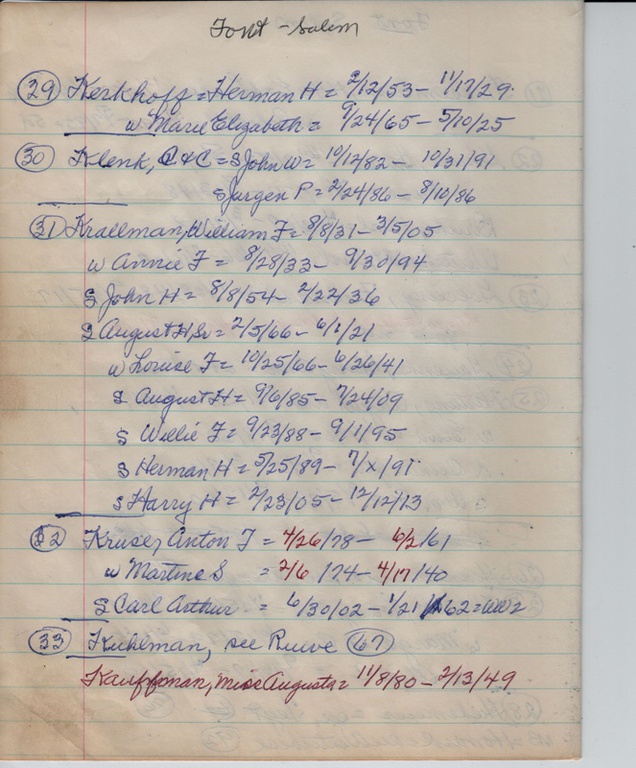 Font - Salem
29 Kerkhoff = Herman H = 2/12/53 - 11/17/29
w Marie Elizabeth = 9/24/65 - 5/10/25
30 Klenk, C & C = S John W = 10/12/82 - 10/31/91
S Jurgen P = 2/24/86 - 8/10/86
31 Krallman, William F = 8/8/31 - 3/5/05
w Annie F = 8/28/33 - 9/30/94
S John H = 8/8/54 - 2/22/36
S August H Sr = 2/5/66 - 6/1/21
w Louise F = 10/25/66 - 6/26/41
S August H = 9/6/85 - 7/24/09
S Willie F = 9/23/88 - 9/1/95
S Herman H = 5/25/89 - 7/x/91
S Harry H = 2/23/05 - 12/12/13
32 Kruse, Anton F = 4/26/78 - 6/2/61
w Martine S = 2/6/74 - 4/17/40
S Carl Arthur = 6/30/02 - 1/21/62 = WW2
33 Kuhlman, see Ruwe 67
Kauffman, Miss Augusta = 11/8/80 - 2/13/49